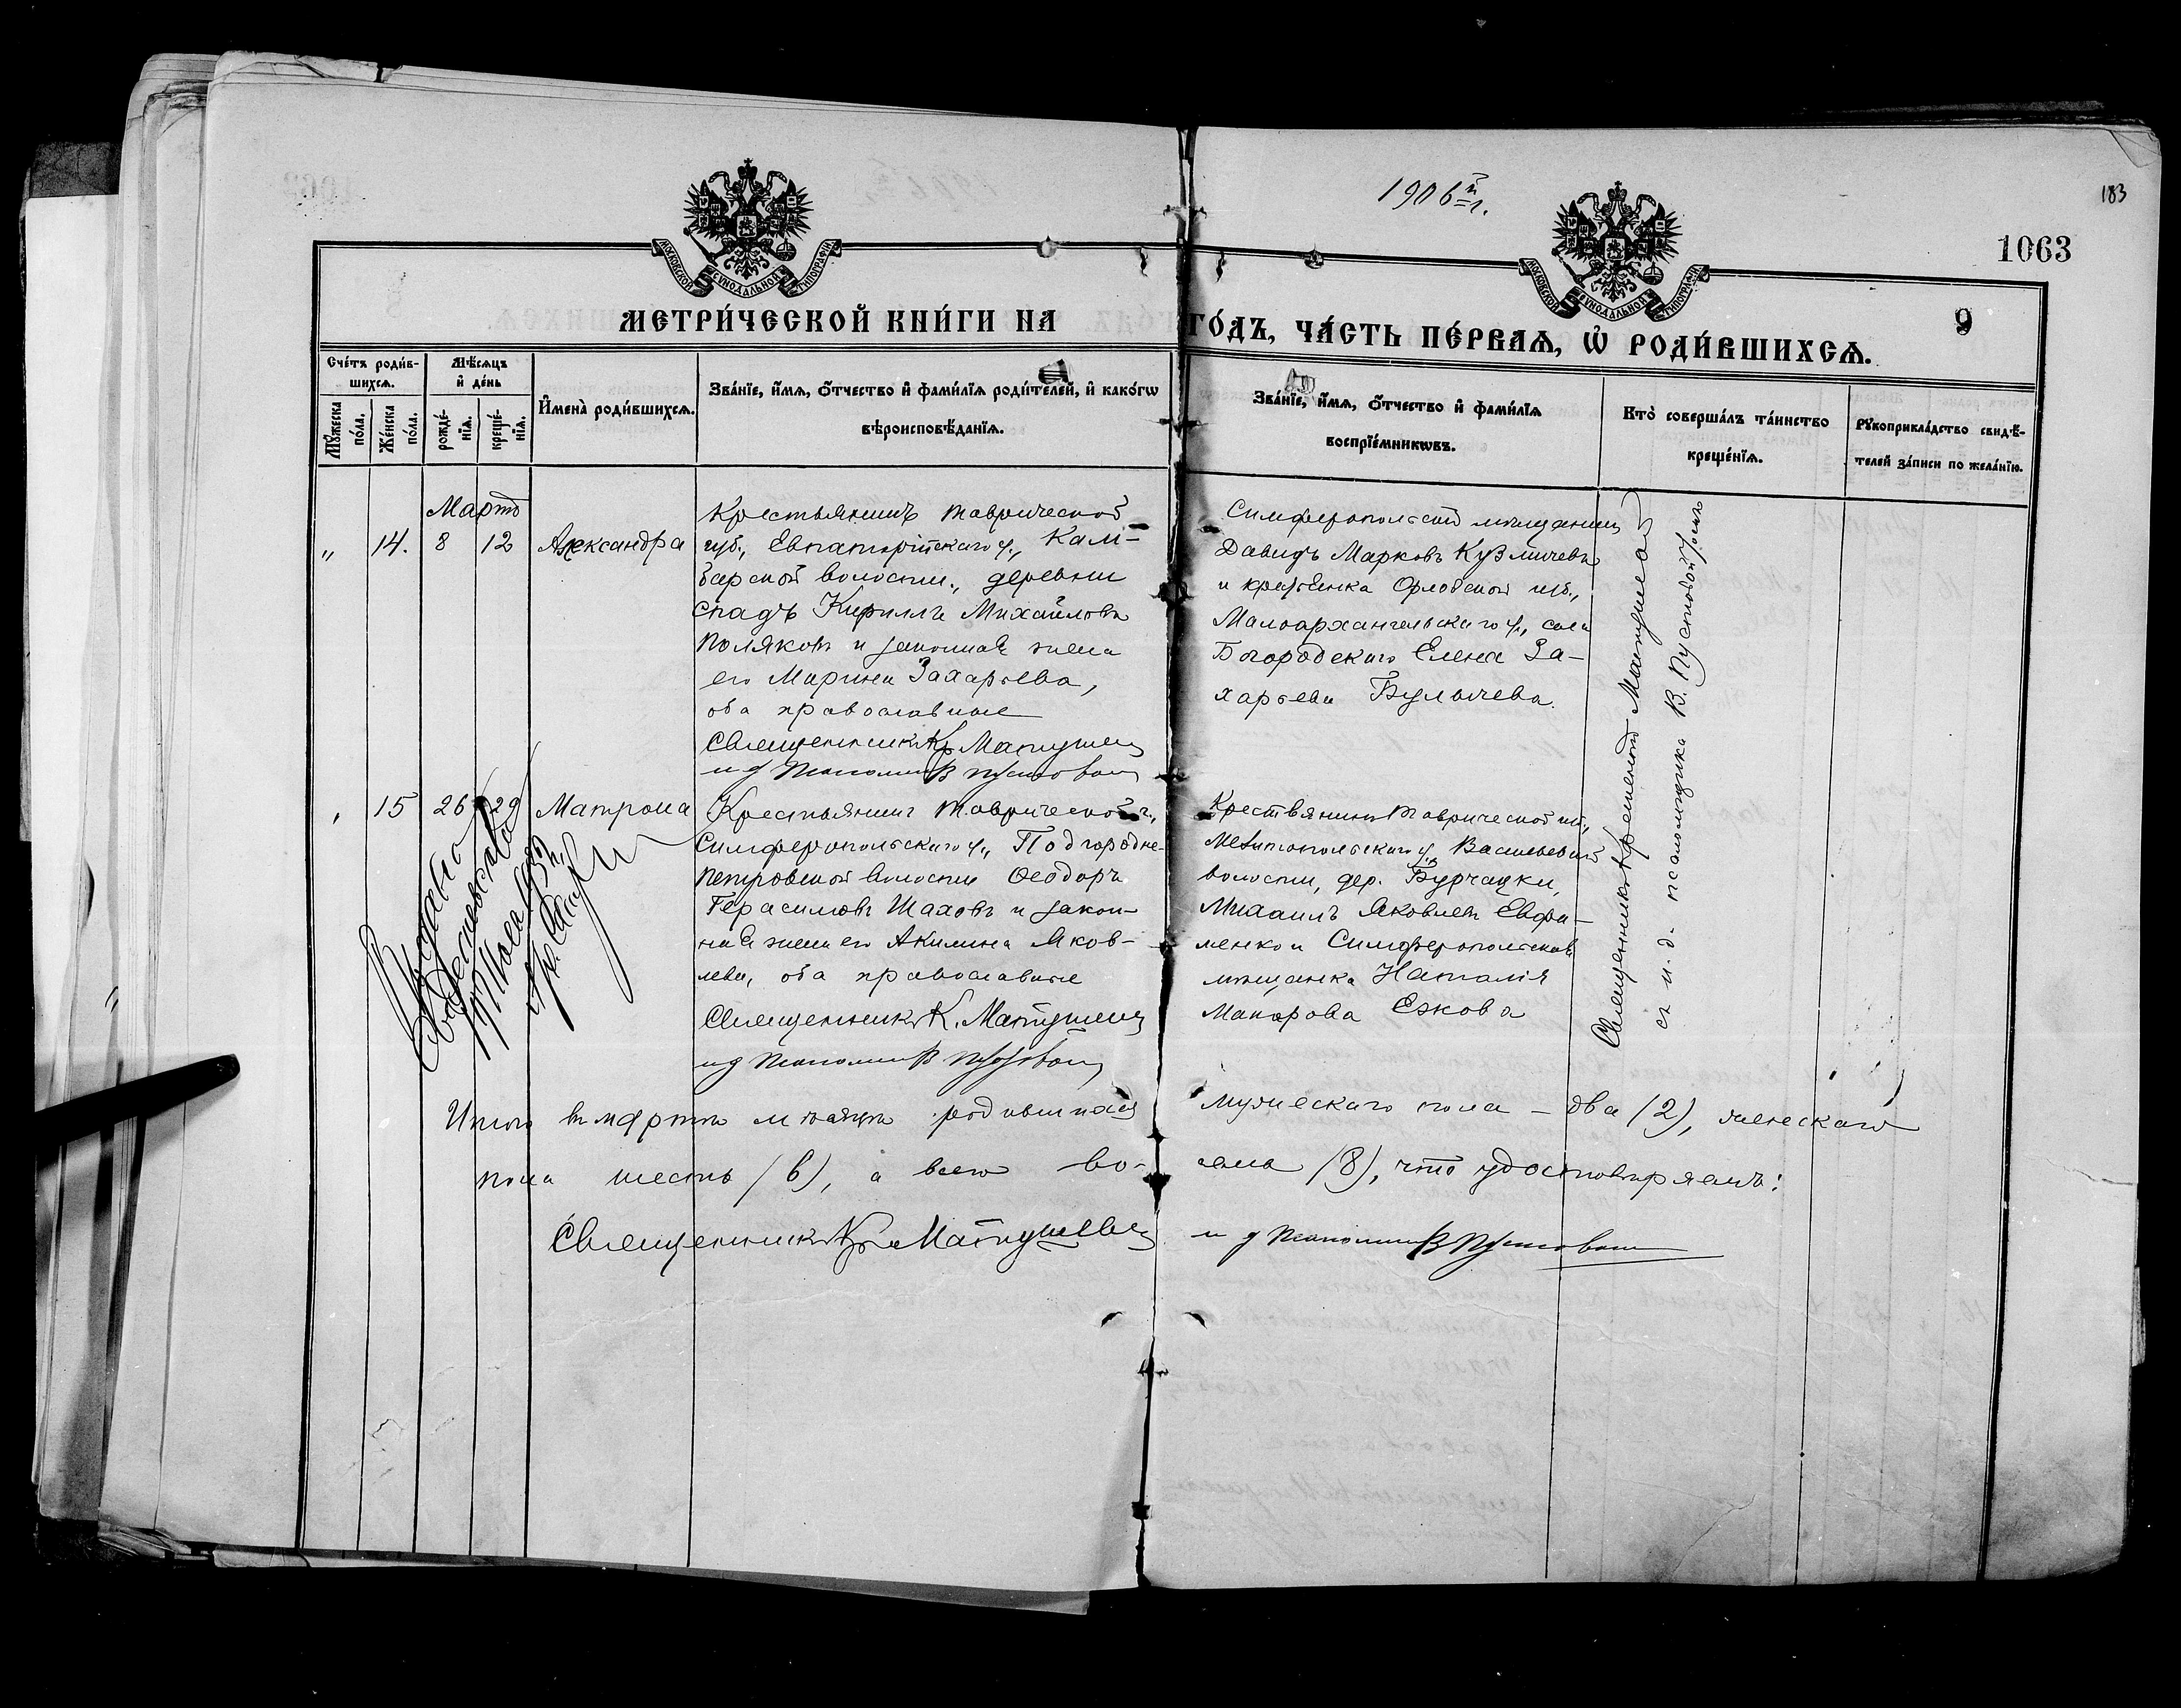 1906 г.
183
1063
9
МОСКОВСКОЙ СѴНОДАЛЬНОЙ ТИПОГРАФІИ
МОСКОВСКОЙ СѴНОДАЛЬНОЙ ТИПОГРАФІИ
МЕТРИ́ЧЕСКОЙ КНИ́ГИ НА
ГО́ДЪ, ЧА́СТЬ ПЕ́РВАѦ, Ѡ҆ РОДИ́ВШИХСѦ.
Сче́тъ роди́в-
шихсѧ.
Мꙋ́жеска
по́ла.
Же́нска
по́ла.
Мѣ́сѧцъ
и҆ де́нь
рожде́-
нїѧ.
креще́-
нїѧ.
И҆мена̀ роди́вшихсѧ.
Зва́нїе, и҆́мѧ, ѻ҆́тчество и҆ фами́лїѧ роди́телей, и҆ како́гѡ
вѣроисповѣ́данїѧ.
Зва́нїе, и҆́мѧ, ѻ҆́тчество и҆ фами́лїѧ
воспрїе́мникѡвъ.
Кто̀ соверша́лъ та́инство
креще́нїѧ.
Рꙋкоприкла́дство свидѣ́-
телей за́писи по жела́нїю.
Мартъ
„ 14. 8 12 Александра
Крестьянинъ Таврической
губ., Евпаторійскаго у., Кам-
барской волости, деревни
Спадъ Кириллъ Михайловъ
Поляковъ и законная жена
его Марина Захарьева,
оба православные
Священникъ Кр. Матушевъ
и д псаломщ В Пустовой
Симферопольскій мѣщанинъ
Давидъ Марковъ Кузмичевъ
и крестьянка Орловской губ.,
Малоархангельскаго у., села
Богородскаго Елена За-
харьева Булычева.
Священникъ
съ и. д. псаломщика В. Пустовойтомъ
„ 15 26 29 Матрона
Крестьянинъ Таврической г.,
Симферопольскаго у., Подгородне-
Петровской волости Ѳеодоръ
Герасимовъ Шаховъ и закон-
ная жена его Акилина Яков-
лева, оба православные
Священникъ К. Матушевъ
и д псаломщ В Пустовой
Крестьянинъ Таврической губ.,
Мелитопольскаго у., Васильевской
волости, дер. Бурчацки,
Михаилъ Яковлевъ Евфи-
менко и Симферопольская
мѣщанка Наталія
Макарова Ежова
Итого въ мартѣ мѣсяцѣ родившихся мужескаго пола – два (2), женскаго
пола шесть (6), а всего во-семь (8), что удостовѣряемъ:
Священникъ Кр. Матушевъ и д псаломщ В Пустовой